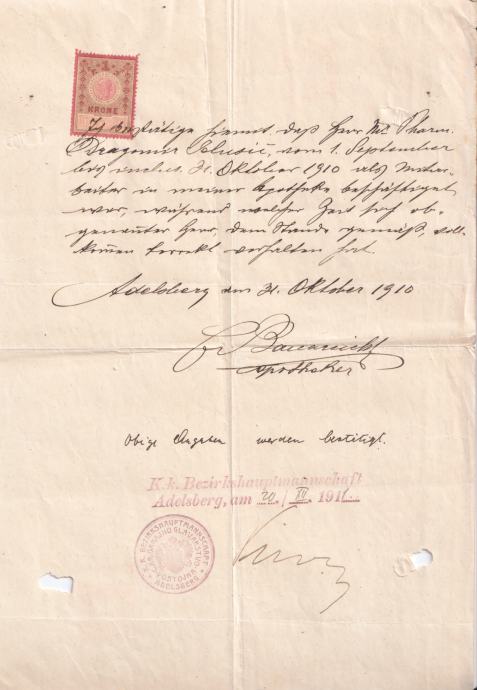 1
KRONE
Ich bestätige hiemit, daß Herr Mr. Pharm.
Dragomir, vom 1. September
bis inclus. 31. Oktober 1910 als Mitar-
beiter in meiner Apotheke beschäftiget
war, während welcher Zeit sich ob-
genannter Herr, dem Stande gemäß, voll-
kommen korrekt verhalten hat.
Adelsberg am 31. Oktober 1910
Apotheker
Obige Angaben werden bestätigt.
K.k. Bezirkshauptmannschaft
Adelsberg, am 20. / XII. 191
K.K. BEZIRKSHAUPTMANNSCHAFT
C.K. OKRAJNO GLAVARSTVO
POSTOJNA
ADELSBERG